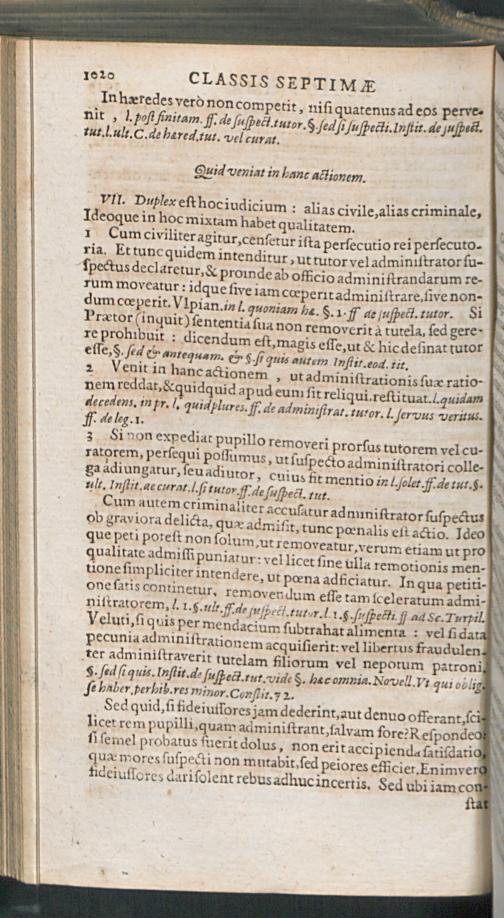 1020 CLASSIS SEPTIMÆ
In hæredes verò non competit, nisi quatenus ad eos perve-
nit, l. post finitam. ff. de suspect. tutor. §. sed si suspecti. Instit. de suspect.
tut. l. ult. C. de hæred. tut. vel curat.
Quid veniat in hanc actionem.
VII. Duplex est hoc iudicium : alias civile, alias criminale,
Ideoque in hoc mixtam habet qualitatem.
1 Cum civiliter agitur, censetur ista persecutio rei persecuto-
ria. Et tunc quidem intenditur, ut tutor vel administrator su-
spectus declaretur, & proinde ab officio administrandarum re-
rum moveatur : idque sive iam cœperit administrare, sive non-
dum cœperit. Vlpian. in l. quoniam hæ. §. 1. ff de suspect. tutor. Si
Prætor (inquit) sententia sua non removerit à tutela, sed gere-
re prohibuit : dicendum est, magis esse, ut & hic desinat tutor
esse, §. sed & antequam. & §. si quis autem Instit. eod. tit.
2 Venit in hanc actionem , ut administrationis suæ ratio-
nem reddat, & quidquid apud eum sit reliqui. restituat. l. quidam
decedens. in pr. l. quid plures. ff. de administrat. tutor. l. servus veritus.
ff. de leg. 1.
3 Si non expediat pupillo removeri prorsus tutorem vel cu-
ratorem, persequi possumus, ut suspecto administratori colle-
ga adiungatur, seu adiutor, cuius fit mentio in l. solet. ff. de tut. §.
ult. Instit. de curat. l. si tutor. ff. de suspect. tut.
Cum autem criminaliter accusatur administrator suspectus
ob graviora delicta, quæ admisit, tunc pœnalis est actio. Ideo
que peti potest non solum, ut removeatur, verum etiam ut pro
qualitate admissi puniatur : vel licet sine ulla remotionis men-
tione simpliciter intendere, ut pœna adficiatur. In qua petiti-
one satis continetur, removendum esse tam sceleratum admi-
nistratorem, l. 1. §. ult. ff. de suspect. tutor. l. 1. §. suspecti. ff ad Sc. Turpil.
Veluti, si quis per mendacium subtrahat alimenta : vel si data
pecunia administrationem acquisierit: vel libertus fraudulen-
ter administraverit tutelam filiorum vel nepotum patroni.
§. sed si quis. Instit. de suspect. tut. vide §. hæc omnia. Novell. Vt qui oblig.
se haber. perhib. res minor. Constit. 72.
Sed quid, si fideiussores jam dederint, aut denuo offerant, sci-
licet rem pupilli, quam administrant, salvam fore? Respondeo:
si semel probatus fuerit dolus, non erit accipienda satisdatio,
quæ mores suspecti non mutabit, sed peiores efficiet. Enimvero
fideiussores dari solent rebus adhuc incertis. Sed ubi iam con-
stat